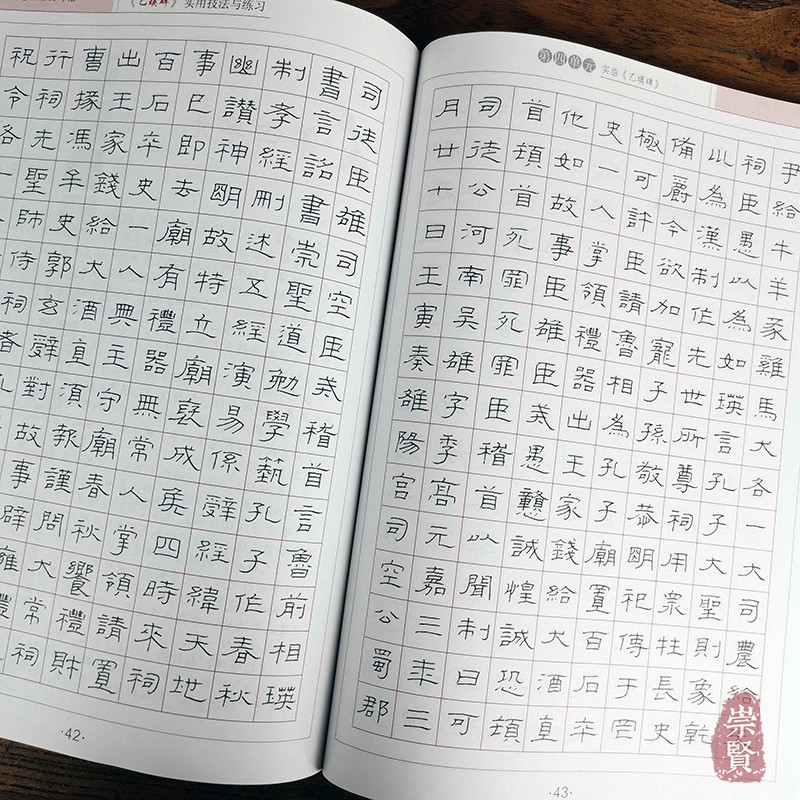 《乙瑛碑》实用技法与练习
司徒臣雄司空臣戒稽首言魯前相瑛
書言詔書崇聖道勉學藝孔子作春秋
制孝經刪述五經演易係辭經緯天地
幽讚神明故特立廟褒成矦四時來祠
事已即去廟有禮器無常人掌領請置
百石卒史一人典主守廟春秋饗禮財
出王家錢給犬酒直須報謹問大常祠
曹掾馮牟史郭玄辭對故事辟雍禮
行祠先聖師侍祠者孔
祝令各一
·42·
第四单元 实临《乙瑛碑》
尹給牛羊豕雞馬犬各一大司農給
祠臣愚以為如瑛言孔子大聖則象乾
為漢制作先世所尊祠用眾牲長史
備爵今欲加寵子孫敬恭明祀傳于罔
極可許臣請魯相為孔子廟置百石卒
史一人掌領禮器出王家錢給犬酒直
他如故事臣雄臣戒愚戇誠惶誠恐頓
首頓首死罪死罪臣稽首以聞制曰可
司徒公河南吳雄字季高元嘉三年三
月廿十日壬寅奏雒陽宮司空公蜀郡
·43·
崇賢